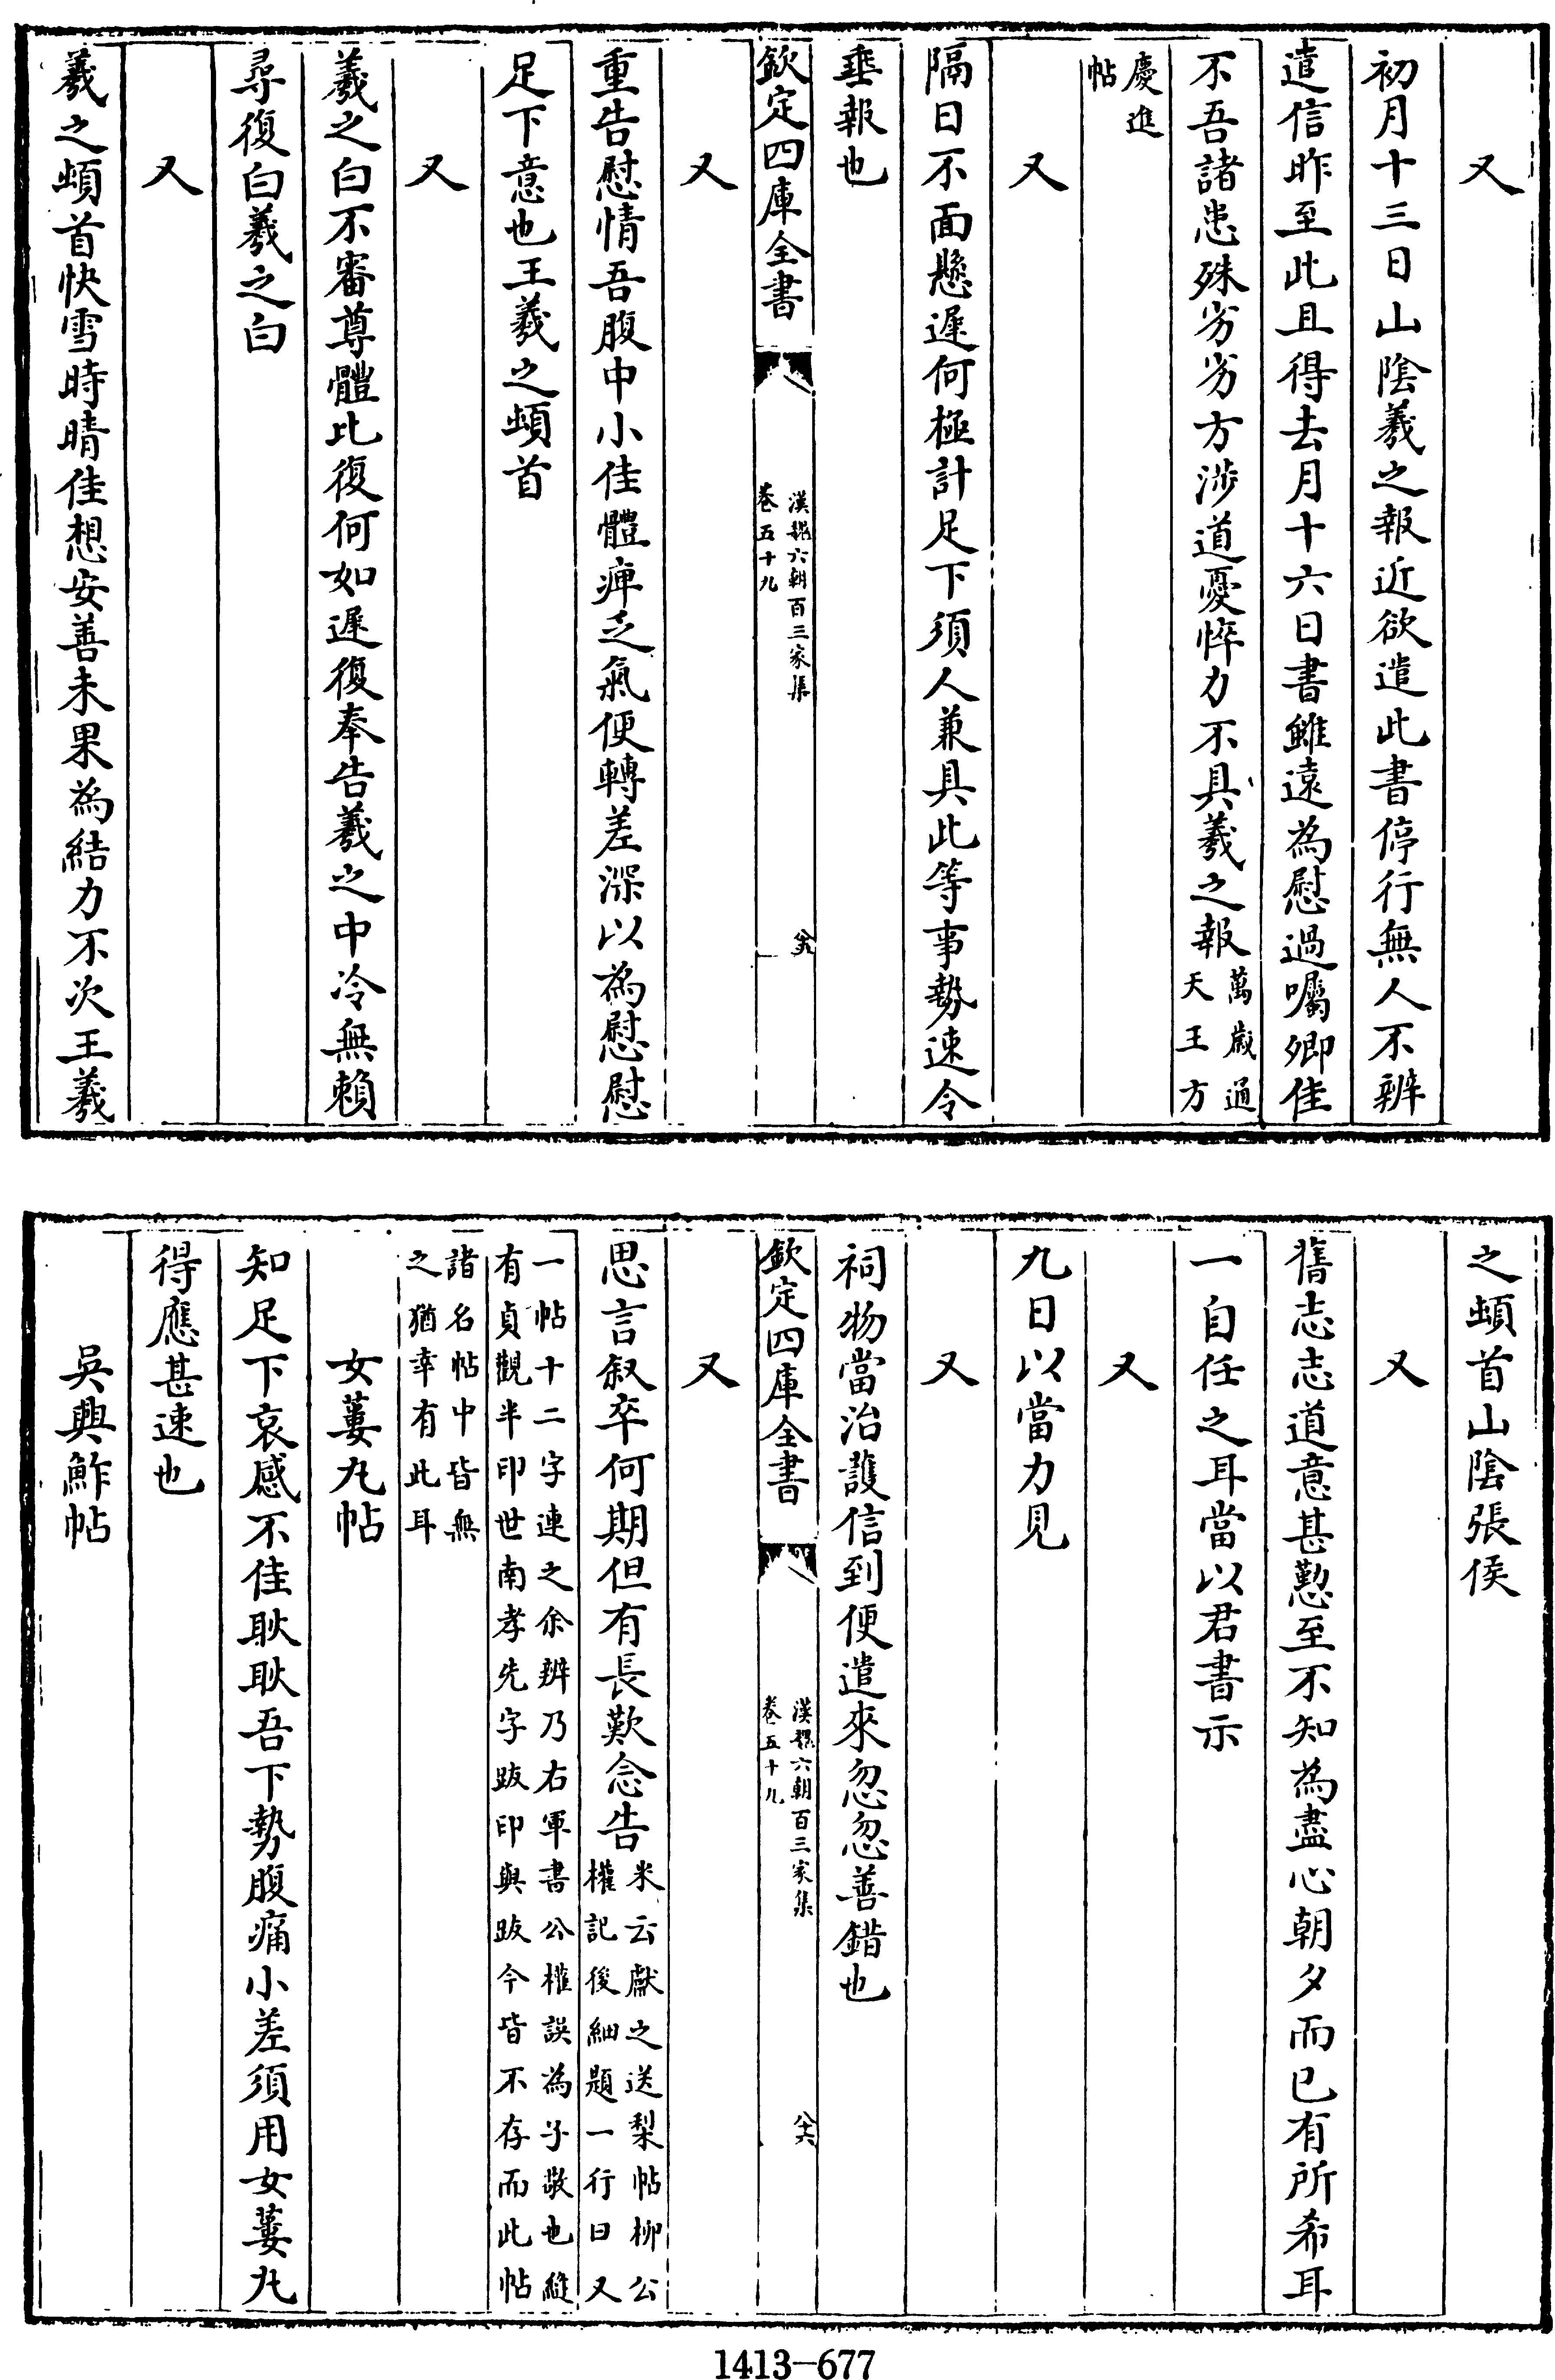 又
初月十三日山陰羲之報近欲遣此書停行無人不辨
遣信昨至此且得去月十六日書雖遠為慰過囑卿佳
不吾諸患殊劣劣方涉道憂悴力不具羲之報萬歲通
天王方
慶進
帖
又
隔日不面懸遲何極計足下須人兼具此等事勢速令
垂報也
欽定四庫全書
漢魏六朝百三家集
卷五十九
又
重告慰情吾腹中小佳體痺乏氣便轉差深以為慰慰
足下意也王羲之頓首
又
羲之白不審尊體比復何如遲復奉告羲之中冷無賴
尋復白羲之白
又
羲之頓首快雪時晴佳想安善未果為結力不次王羲
之頓首山陰張侯
又
舊志志道意甚懃至不知為盡心朝夕而已有所希耳
一自任之耳當以君書示
又
九日以當力見
又
祠物當治護信到便遣來忽忽善錯也
欽定四庫全書
漢魏六朝百三家集
卷五十九
又
思言叙卒何期但有長歎念告米云獻之送梨帖柳公
權記後細題一行曰又
一帖十二字連之余辨乃右軍書公權誤為子敬也縫
有貞觀半印世南孝先字跋印與跋今皆不存而此帖
諸名帖中皆無
之猶幸有此耳
女蔞丸帖
知足下哀感不佳耿耿吾下勢腹痛小差須用女蔞丸
得應甚速也
吳興鮓帖
1413-677